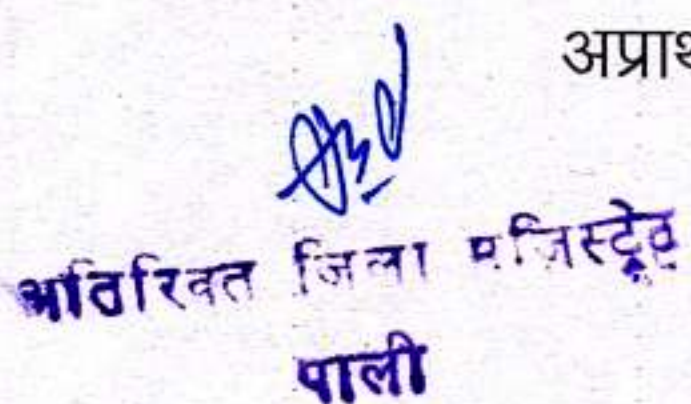 अप्रार्थ
अतिरिक्त जिला मजिस्ट्रेट
पाली